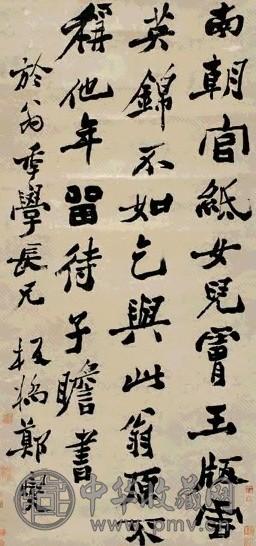 南朝官紙女兒膚玉版雲
英錦不如乞與此翁不
稱他年留待子瞻書
於翁年學長兄 板橋鄭燮
中华收藏网